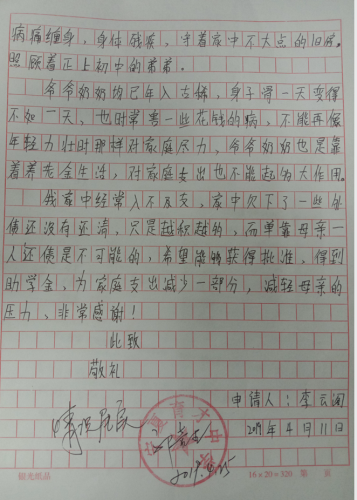 病痛缠身，身体残疾，守着家中不大点的旧房。
照顾着正上初中的弟弟。
爷爷奶奶均已年入古稀，身子骨一天变得
不如一天，也时常害一些花钱的病，不能再像
年轻力壮时那样对家庭尽力，爷爷奶奶也是靠
着养老金生活，对家庭支出也不能起到大作用。
我家中经常入不及支，家中欠下了一些外
债还没有还清，只是越积越的，而单靠母亲一
人还债是不可能的，希望能够获得批准，得到
助学金，为家庭支出减少一部分，减轻母亲的
压力、非常感谢！
此致
敬礼
申请人：李云阁
2019年4月11日
情况属实
2019.4.15
16×20=320 第 页